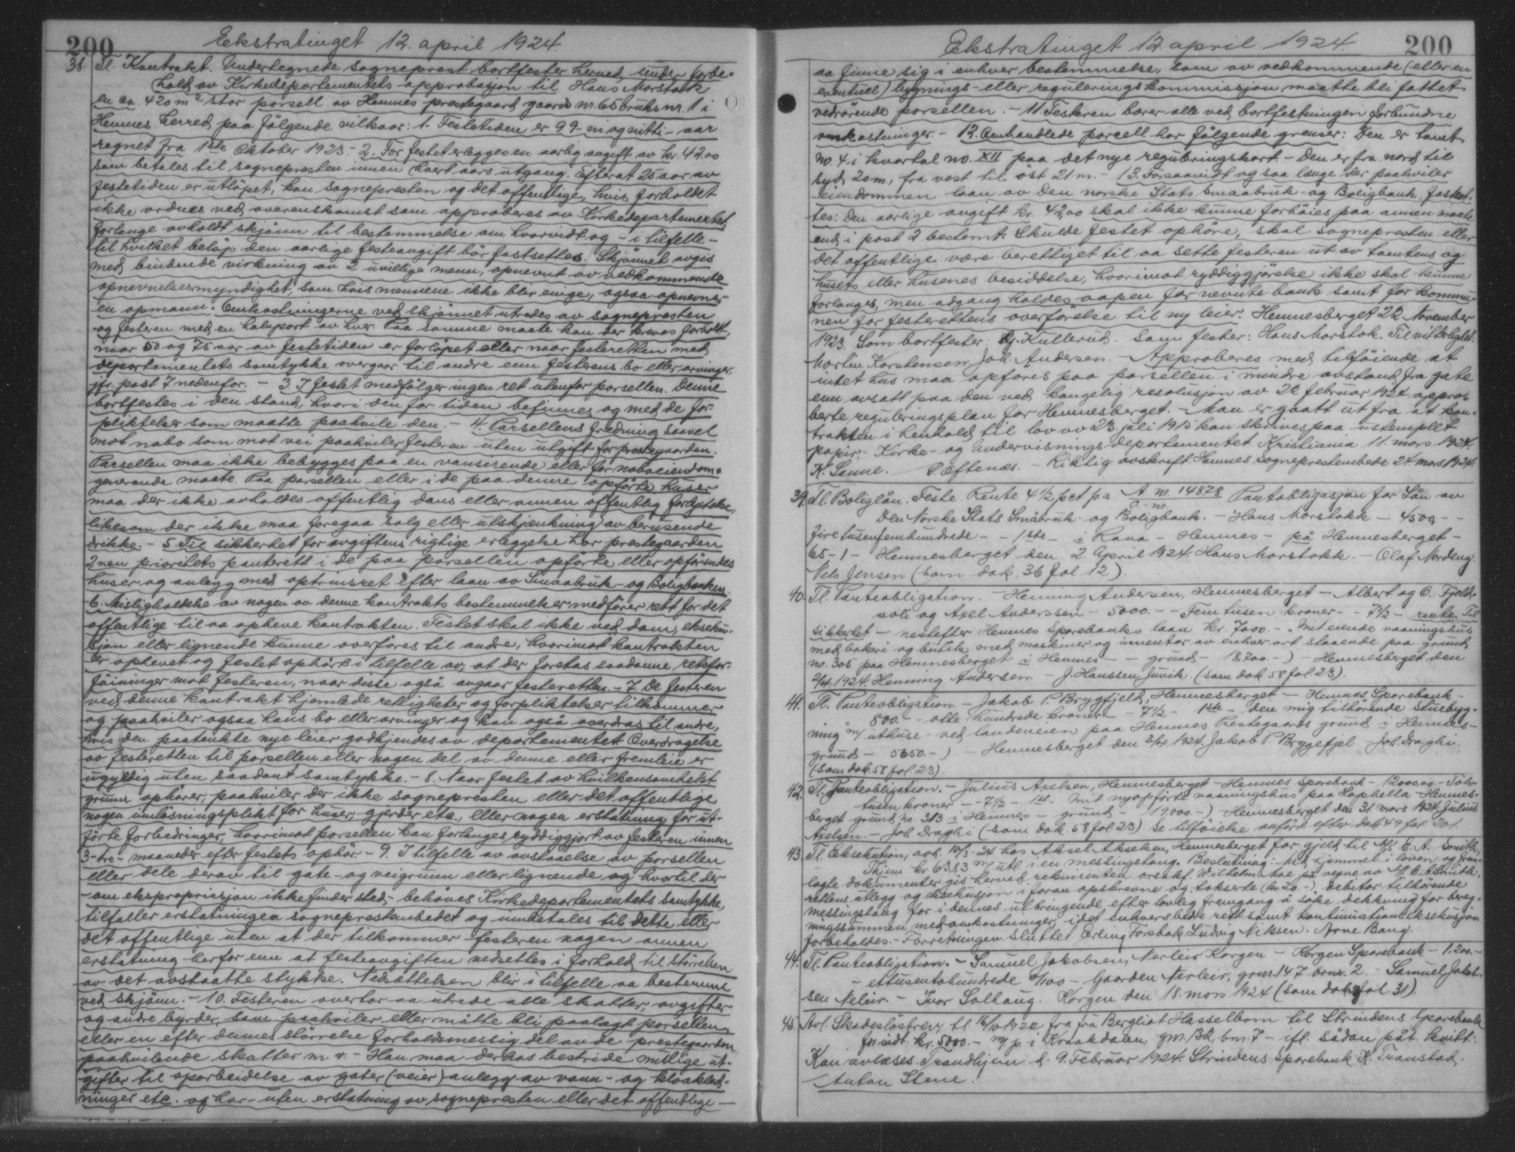 200 Ekstratinget 12. april 1924
38 Tl. Kontrakt. Undertegnede sogneprest bortfester herved under forbe-
hold av Kirkedepartementets approbasjon til Hans Morstokk
en ca. 420 m² stor parsell av Hemnes prestegaard gaards nr. 65 bruks nr. 1 i
Hemnes herred, paa følgende vilkaar: 1. Festetiden er 99 - ni og nitti - aar
regnet fra 1ste Oktober 1923. - 2. For festet erlegges en aarlig avgift av kr. 42.00
som betales til sognepresten innen hvert aars utgang. Efterat 25 aar av
festetiden er utløpet, kan sognepresten og det offentlige, hvis forholdet
ikke ordnes ved overenskomst som approberes av Kirkedepartementet,
forlange avholdt skjønn til bestemmelse om hvorvidt og - i tilfelle -
til hvilket beløp den aarlige festeavgift bør fastsettes. Skjønnet avgis
med bindende virkning av 2 uvillige menn, opnevnt av vedkommende
opnevnelsesmyndighet, som hvis mennene ikke blir enige, ogsaa opnevner
en opmann. Omkostningerne ved skjønnet utredes av sognepresten
og festeren med en halvpart av hver. Paa samme maate kan der kreves forholdt
naar 50 og 75 aar av festetiden er forløpet eller naar festeretten med
departementets samtykke overgaar til andre enn festerens bo eller arvinger,
jfr. post 7 nedenfor. - 3. I festet medfølger ingen ret utenfor parsellen. Denne
bortfestes i den stand, hvori den for tiden befinnes og med de for-
pliktelser som maatte paahvile den. - 4. Parsellens fredning saavel
mot nabo som mot vei paahviler festeren uten utgift for prestegaarden.
Parsellen maa ikke bebygges paa en vansirende eller for naboeiendom-
generende maate. Paa parsellen eller i de paa denne opførte huser
maa der ikke avholdes offentlig dans eller annen offentlig forlystelse,
likesom der ikke maa foregaa salg eller utskjenkning av berusende
drikke. - 5. Til sikkerhet for avgiftens riktige erleggelse har prestegaarden
2nen prioritets panterett i de paa parsellen opførte eller opførendes
huser og anlegg med optrinsret efter laan av Smaabruk- og Boligbanken.
6. Misligholdelse av nogen av denne kontrakts bestemmelser medfører rett for det
offentlige til aa opheve kontrakten. Festet skal ikke ved dom, ekseku-
sjon eller lignende kunne overføres til andre, hvorimot kontrakten
er ophevet og festet ophørt i tilfelle av at der foretas saadanne retsfor-
føininger mot festeren, naar disse også angaar festeretten. - 7. De festeren
ved denne kontrakt hjemlede rettigheter og forpliktelser tilkommer
og paahviler ogsaa hans bo eller arvinger og kan også overdras til andre,
hvis den paatenkte nye leier godkjendes av departementet. Overdragelse
av festeretten til parsellen eller nogen del av denne eller fremleie er
ugyldig uten saadant samtykke. - 8. Naar festet av hvilkensomhelst
grunn ophører, paahviler der ikke sognepresten eller det offentlige
nogen innløsningsplikt for huser, gjerder etc. eller nogen erstatning for ut-
førte forbedringer, hvorimot parsellen kan forlanges ryddiggjort av festeren innen
3 - tre - maaneder efter festets ophør. - 9. I tilfelle av avstaaelse av parsellen
eller dele derav til gate- og veigrunn eller lignende og hvortil der
- om ekspropriasjon ikke finder sted - behøves Kirkedepartementets samtykke,
tilfaller erstatningen sogneprestembedet og innbetales til dette eller
det offentlige uten at der tilkommer festeren nogen annen
erstatning herfor enn at festeavgiften nedsettes i forhold til størrelsen
av det avstaatte stykke. Nedsettelsen blir i tilfelle aa bestemme
ved skjønn. - 10. Festeren overtar aa utrede alle skatter, avgifter
og andre byrder, som paahviler eller måtte bli paalagt parsellen
eller en efter dennes størrelse forholdsmessig del av de prestegaarden
paahvilende skatter m.v. - Han maa derhos bestride mulige ut-
gifter til oparbeidelse av gater (veier) anlegg av vann- og kloakled-
ninger etc. og har - uten erstatning av sognepresten eller det offentlige -
Ekstratinget 12 april 1924 200
aa finne sig i enhver bestemmelse, som av vedkommende (eller en
eventuel) bygnings- eller reguleringskommissjon maatte bli fattet
vedrørende parsellen. - 11. Festeren bærer alle ved bortfestningen forbundne
omkostninger. - 12. Omhandlede parcell har følgende grenser: Den er tomt
no. 4 i kvartal no. XII paa det nye reguleringskart - Den er fra nord til
syd 20 m, fra vest til øst 21 m. - 13. Forsaavidt og saa lenge der paahviler
eiendommen laan av Den norske Stats Smaabruk- og Boligbank fastset-
tes: den aarlige avgift kr. 42,00 skal ikke kunne forhøies paa annen maate
end i post 2 bestemt. Skulde festet ophøre, skal sognepresten eller
det offentlige være berettiget til aa sette festeren ut av tomtens og
husets eller husenes besiddelse, hvorimot ryddiggjørelse ikke skal kunne
forlanges, men adgang holdes aapen for nevnte bank samt for kommu-
nen for festerettens overførelse til ny leier. Hemnesberget 22 November
1923. Som bortfester: Kullerud. Som fester: Hans Morstok. Til vitterlighet:
Martin Karstensen, Joh. Andersen. - Approberes med tilføiende at
intet hus maa opføres paa parsellen i mindre avstand fra gate
enn avsatt paa den ved kongelig resolusjon av 22 februar 1924 appro-
berte reguleringsplan for Hemnesberget. - Man er gaatt ut fra at kon-
trakten i henhold til lov av 23 juli 1915 kan skrives paa ustemplet
papir. Kirke- og Undervisnings Departementet Kristiania 11 mars 1924
K. Sanne. Eftenæs. - Riktig avskrift Hemnes Sogneprestembede 24 mars 1924.
39. Tl. Boliglån. Feste. Rente 4 1/2 pct pa. A. nr. 14878 Pantobligasjon for lån av
Den Norske Stats Småbruk- og Boligbank. - Hans Morstokk - 4500 - -
Firetusenfemhundrede - - 1ste - i Rana - Hemnes - på Hemnesberget -
65 - 1 - Hemnesberget den 2 April 1924. Hans Morstokk. - Olaf Nordeng.
Nils Jensen (som dok. 36 fol 12)
40. Tl. Panteobligation. - Henning Andersen, Hemnesberget - Albert og O. Fjeld-
avli og Axel Anderssen - 5000 - - Fem tusen kroner - 7 1/2 - rente. Til
Sikkerhet - nestefter Hemnes Sparebanks laan kr. 7000 - Mit eiende vaaningshus
med bakeri og butik med maskiner og inventar av enhver art staaende paa grund
no. 305 paa Hemnesberget i Hemnes - grund - 18700 - ) Hemnesberget den
1924. Henning Andersen. - J. Hanssen Juvik (som dok 58 fol 23).
41. Tl. Panteobligation - Jakob P. Bryggfjeld, Hemnesberget - Hemnes Sparebank -
800 - otte hundrede kroner - 7 1/2 - 1ste - den mig tilhørende stuebyg-
ning m/ uthuse - ved landeveien paa Hemnes Prestegaards grund i Hemnes -
grund - 5650 - ) Hemnesberget den 1924. Jakob P Bryggefjel. Joh. Draghi
(som dok 58 fol 23).
42. Tl. Panteobligation. - Julius Axelsen, Hemnesberget - Hemnes Sparebank - 12000.00 - Tolv-
tusen kroner - 7 1/2 - 1ste - Mit nyopførte vaaningshus paa Kaphella - Hemnes-
berget grund no. 313 i Hemnes - grund - 19800 - ) Hemnesberget den 31 mars 1924 Julius
Axelsen. - Joh Draghi (som dok 58 fol 23). Se tilføielse anført efter dok 49 fol. 201.
43. Tl. Eksekution, avh. 10/3-24 hos Aksel Akselsen, Hemnesberget for gjeld til A/S E. A. Smith,
Thjem kr. 63,53 m/ utl. i en messingstang. Beslutning: Med hjemmel i loven og frem-
lagte dokumenter gis herved rekvirenten orsakf. Wilhelm Roe på vegne av A/S E. A. Smith
rettens utlegg og eksekusjon i foran opskrevne og takserte (kr 20.-) debitor tilhørende
messingstang for i dennes utbringende efter lovlig fremgang å søke dekkning for bereg-
ningssummen med omkostninger, idet enhvers bedre rett samt kontinuationseksekusjon
forbeholdes. - Forretningen sluttet. Erling Forsbak. Ludvig Nilssen. Arne Bang.
44. Tl. Panteobligation. - Samuel Jakobsen, Nerleir Korgen - Korgen Sparebank - 1200. -
- Ettusentohundrede 00/100 - Gaarden Nerleir, gnr 147 brnr. 2. - Samuel Jakob-
sen Neleir. - Ivar Solhaug. Korgen den 18. mars 1924 (som dok 9 fol 31)
45. Avl. Skadesløsbrev tl 14/10 1922 fra fra Bergliot Hasselbom til Strindens Sparebank
for indt kr. 5000.- m/ p i Kraakdalen, gnr 132, bnr. 7 - ifl. sådan påt. kvitt:
Kan avlæses. Trondhjem d. 9. Februar 1924. Strindens Sparebank K. Transtad.
Anton Stene.